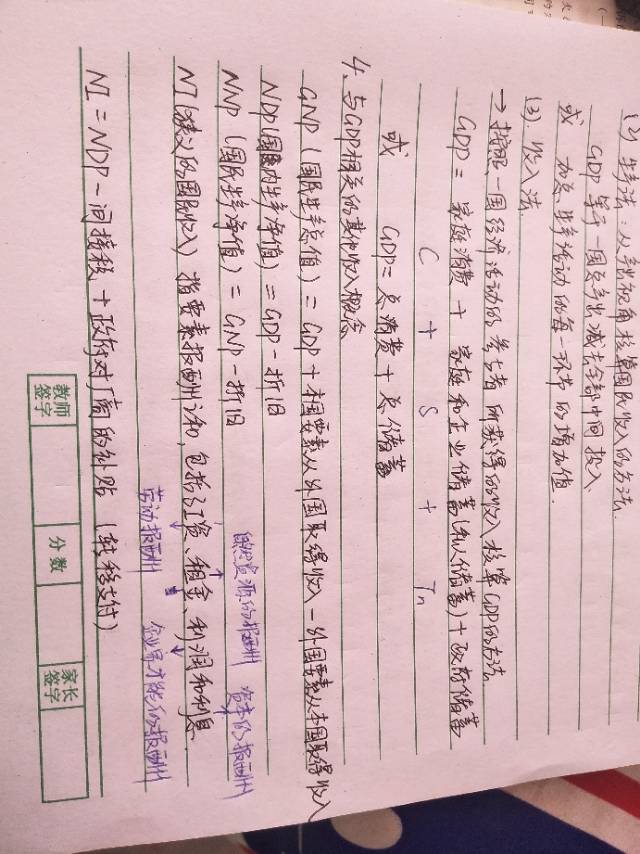 (2) 生产法：从生产视角核算国民收入的方法.
GDP 等于一国总产出减去全部中间投入
或 加总生产活动的每一环节的增加值.
(3). 收入法
→ 按照一国经济活动的参与者所获得的收入核算GDP的方法.
GDP = 家庭消费 + 家庭和企业储蓄(私人储蓄) + 政府储蓄
C + S + Tn
或 GDP = 总消费 + 总储蓄
4、与GDP相关的其他收入概念
GNP (国民生产总值) = GDP + 本国要素从外国取得收入 - 外国要素从本国取得收入
NDP (国内生产净值) = GDP - 折旧
NNP (国民生产净值) = GNP - 折旧
自然资源的报酬 资本的报酬
NI (狭义的国民收入) 指要素报酬之和, 包括了工资、租金、利润和利息.
劳动报酬 企业家才能的报酬
NI = NDP - 间接税 + 政府对厂商的补贴 (转移支付)
教师签字 分数 家长签字